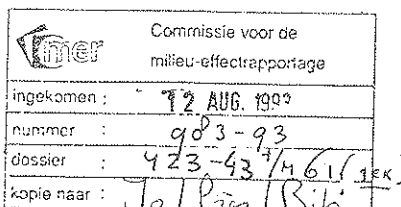 mer
Commissie voor de
milieu-effectrapportage
ingekomen : 12 AUG. 1993
nummer : 903-93
dossier : 423-43
kopie naar :